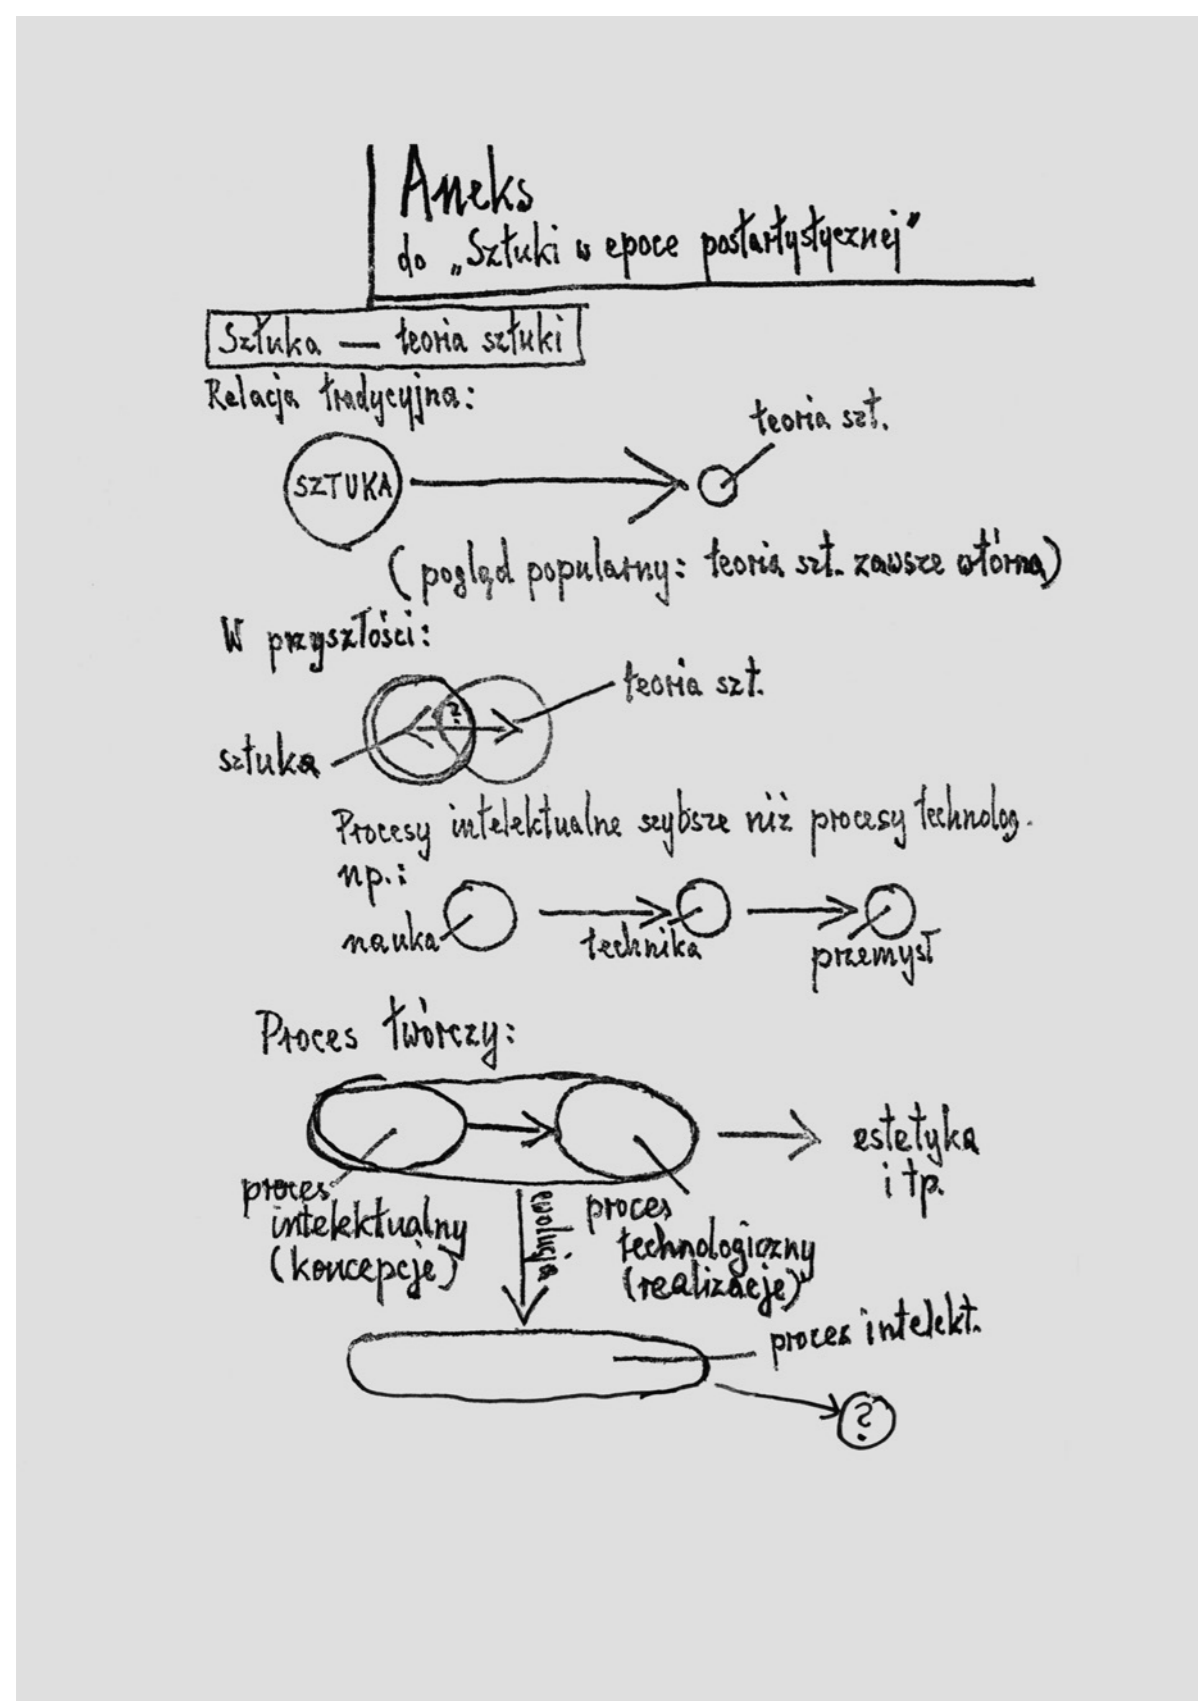 Aneks
do „Sztuki w epoce postartystycznej”
Sztuka — teoria sztuki
Relacja tradycyjna:
teoria szt.
SZTUKA
(pogląd popularny: teoria szt. zawsze wtórna)
W przyszłości:
teoria szt.
?
sztuka
Procesy intelektualne szybsze niż procesy technolog.
np.:
nauka
technika
przemysł
Proces twórczy:
estetyka
i tp.
proces
intelektualny
(koncepcje)
ewolucja
proces
technologiczny
(realizacje)
proces intelekt.
?